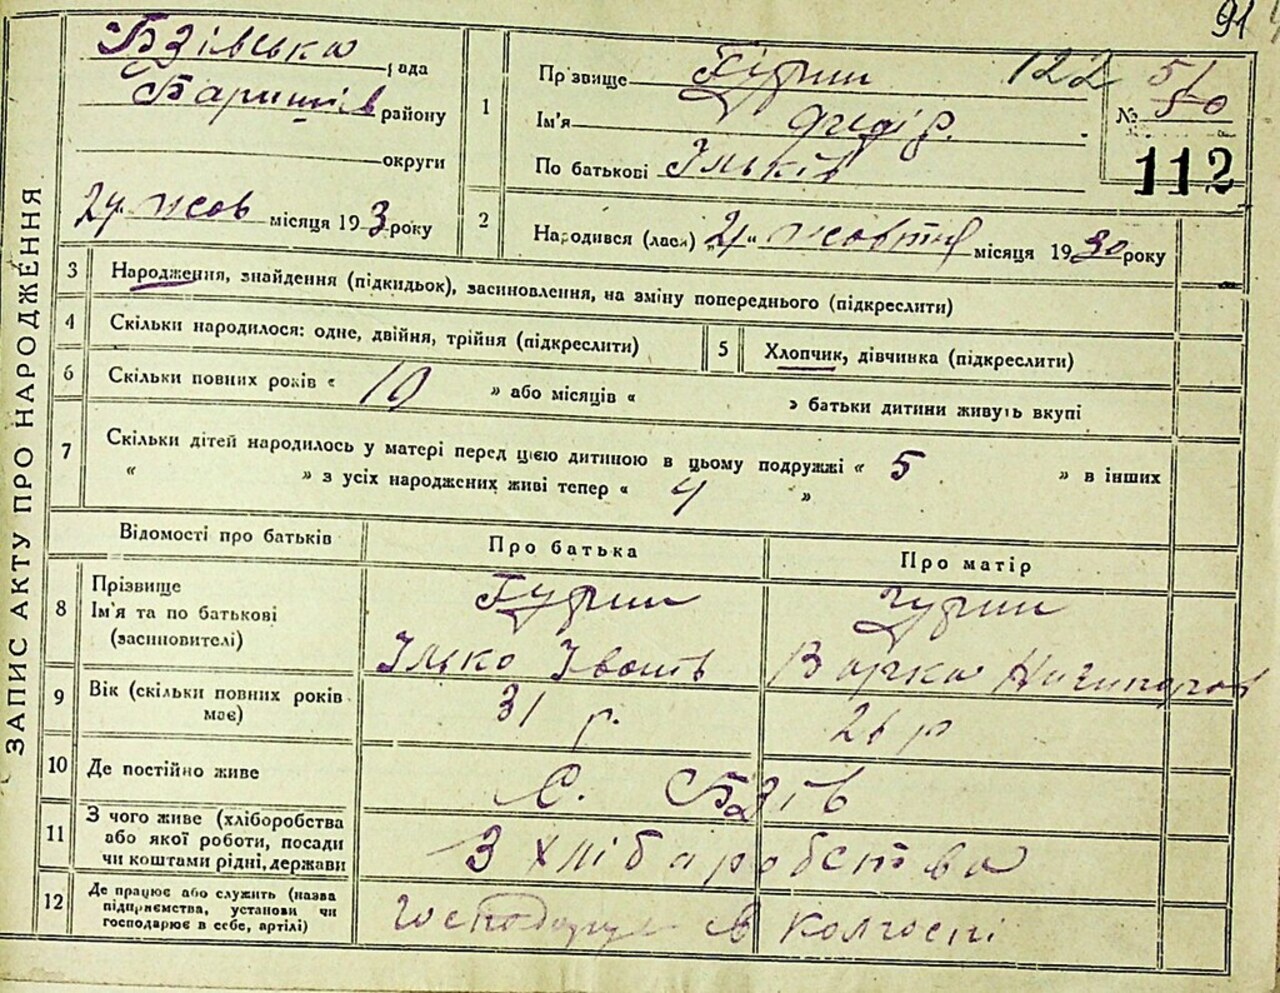 91
ЗАПИС АКТУ ПРО НАРОДЖЕННЯ
Бзівська рада
Баришів району
округи
24 жов місяця 193 року
1
Прізвище Гурин 122
Ім'я Федір.
По батькові Ільків
№ 51/50
112
2
Народився (лася) „24“ жовтня місяця 1930 року
3 Народження, знайдення (підкидьок), засиновлення, на зміну попереднього (підкреслити)
4 Скільки народилося: одне, двійня, трійня (підкреслити)
5 Хлопчик, дівчинка (підкреслити)
6 Скільки повних років « 10 » або місяців « » батьки дитини живуть вкупі
7 Скільки дітей народилось у матері перед цією дитиною в цьому подружжі « 5 » в інших
« » з усіх народжених живі тепер « 4 »
Відомості про батьків Про батька Про матір
8 Прізвище Гурин Гурин
Ім'я та по батькові
(засиновителі) Ілько Іванів Варка Ничипорів
9 Вік (скільки повних років має) 31 р. 26 р
10 Де постійно живе С. Бзів
11 З чого живе (хліборобства
або якої роботи, посади
чи коштами рідні, держави З хліборобства
12 Де працює або служить (назва
підприємства, установи чи
господарює в себе, артілі) господарює в колгоспі